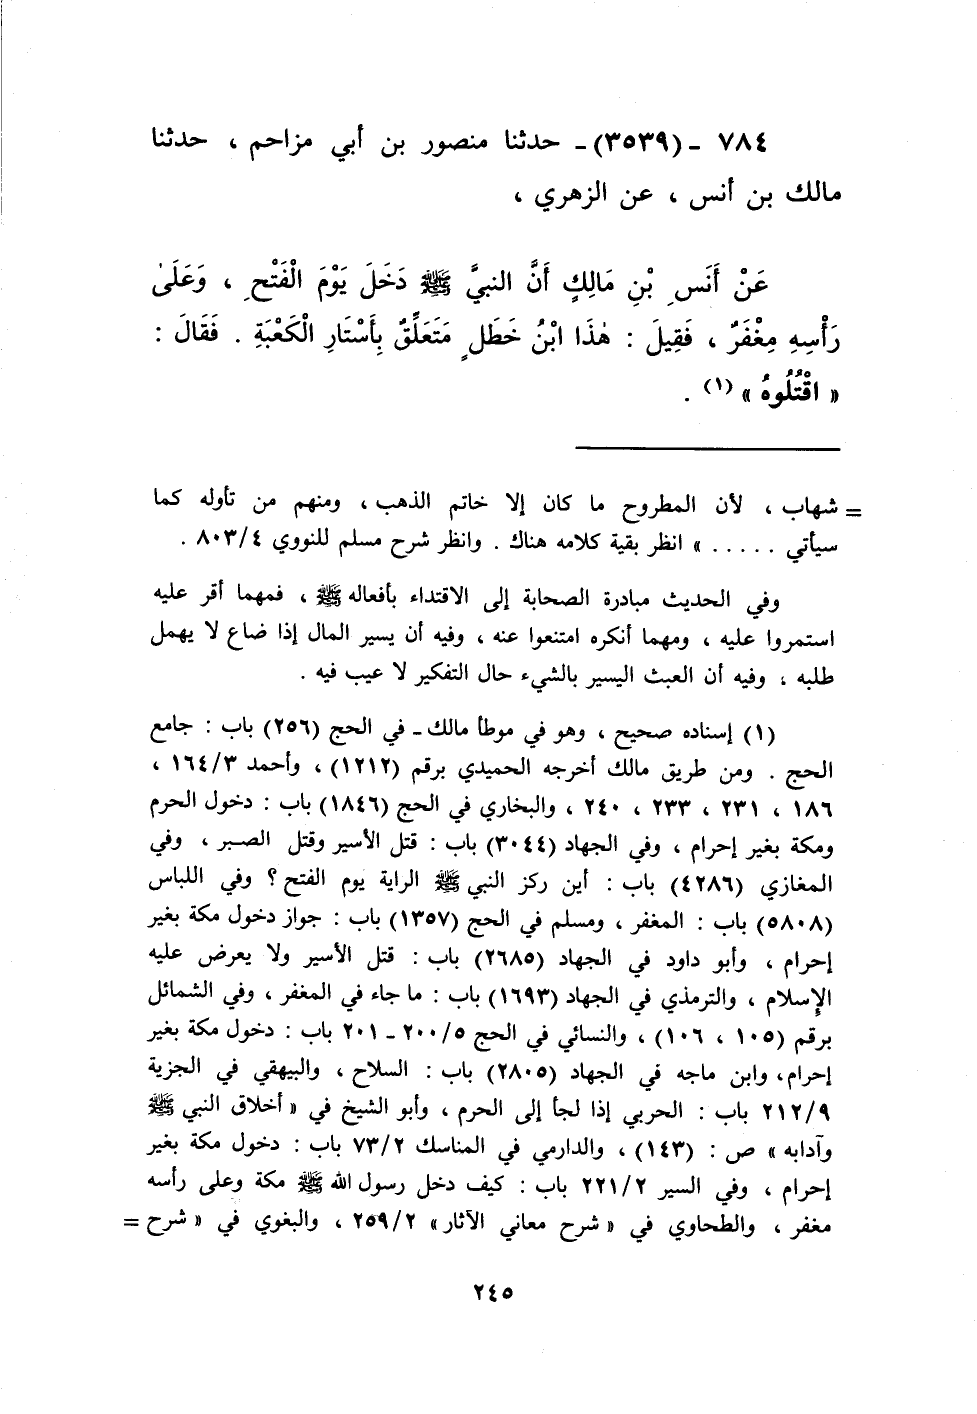 ٧٨٤ - (٣٥٣٩) - حدثنا منصور بن أبي مزاحم ، حدثنا
مالك بن أنس ، عن الزهري ،
عَنْ أَنَسِ بْنِ مَالِكٍ أَنَّ النبيَّ ﷺ دَخَلَ يَوْمَ الْفَتْحِ ، وَعَلَىٰ
رَأْسِهِ مِغْفَرٌ ، فَقِيلَ : هٰذَا ابْنُ خَطَلٍ مَتَعَلِّقٌ بِأَسْتَارِ الْكَعْبَةِ . فَقَالَ :
« اقْتُلُوهُ » (١) .
= شهاب ، لأن المطروح ما كان إلا خاتم الذهب ، ومنهم من تأوله كما
سيأتي . . . . . » انظر بقية كلامه هناك . وانظر شرح مسلم للنووي ٨٠٣/٤ .
وفي الحديث مبادرة الصحابة إلى الاقتداء بأفعاله ﷺ ، فمهما أقر عليه
استمروا عليه ، ومهما أنكره امتنعوا عنه ، وفيه أن يسير المال إذا ضاع لا يهمل
طلبه ، وفيه أن العبث اليسير بالشيء حال التفكير لا عيب فيه .
(١) إسناده صحيح ، وهو في موطأ مالك - في الحج (٢٥٦) باب : جامع
الحج . ومن طريق مالك أخرجه الحميدي برقم (١٢١٢) ، وأحمد ١٦٤/٣ ،
١٨٦ ، ٢٣١ ، ٢٣٣ ، ٢٤٠ ، والبخاري في الحج (١٨٤٦) باب : دخول الحرم
ومكة بغير إحرام ، وفي الجهاد (٣٠٤٤) باب : قتل الأسير وقتل الصبر ، وفي
المغازي (٤٢٨٦) باب : أين ركز النبي ﷺ الراية يوم الفتح ؟ وفي اللباس
(٥٨٠٨) باب : المغفر ، ومسلم في الحج (١٣٥٧) باب : جواز دخول مكة بغير
إحرام ، وأبو داود في الجهاد (٢٦٨٥) باب : قتل الأسير ولا يعرض عليه
الإسلام ، والترمذي في الجهاد (١٦٩٣) باب : ما جاء في المغفر ، وفي الشمائل
برقم (١٠٥ ، ١٠٦) ، والنسائي في الحج ٢٠٠/٥ - ٢٠١ باب : دخول مكة بغير
إحرام، وابن ماجه في الجهاد (٢٨٠٥) باب : السلاح ، والبيهقي في الجزية
٢١٢/٩ باب : الحربي إذا لجأ إلى الحرم ، وأبو الشيخ في « أخلاق النبي ﷺ
وآدابه » ص : (١٤٣) ، والدارمي في المناسك ٧٣/٢ باب : دخول مكة بغير
إحرام ، وفي السير ٢٢١/٢ باب : كيف دخل رسول الله ﷺ مكة وعلى رأسه
مغفر ، والطحاوي في « شرح معاني الآثار» ٢٥٩/٢ ، والبغوي في « شرح =
٢٤٥